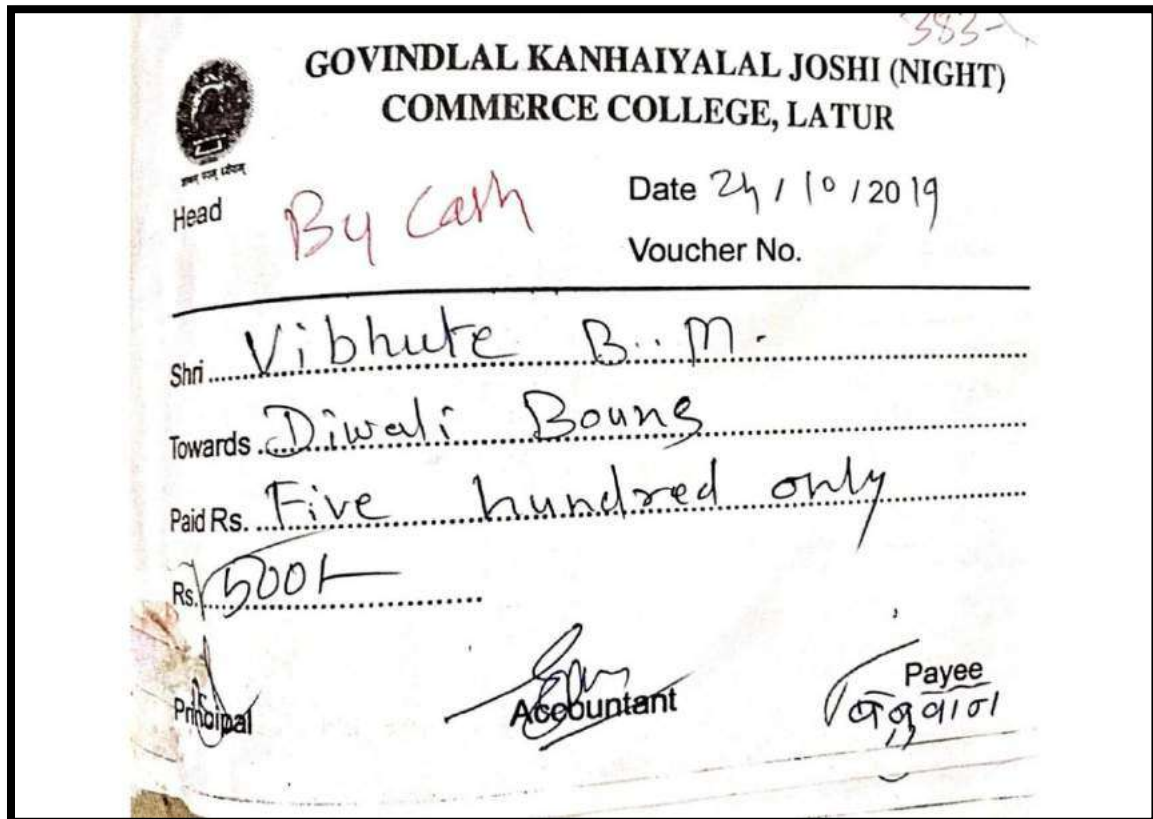 383-
GOVINDLAL KANHAIYALAL JOSHI (NIGHT)
COMMERCE COLLEGE, LATUR
Head By Cash
Date 24 / 10 / 2019
Voucher No.
Shri Vibhute B.M.
Towards Diwali Bouns
Paid Rs. Five hundred only
Rs. 500/-
Principal Accountant Payee